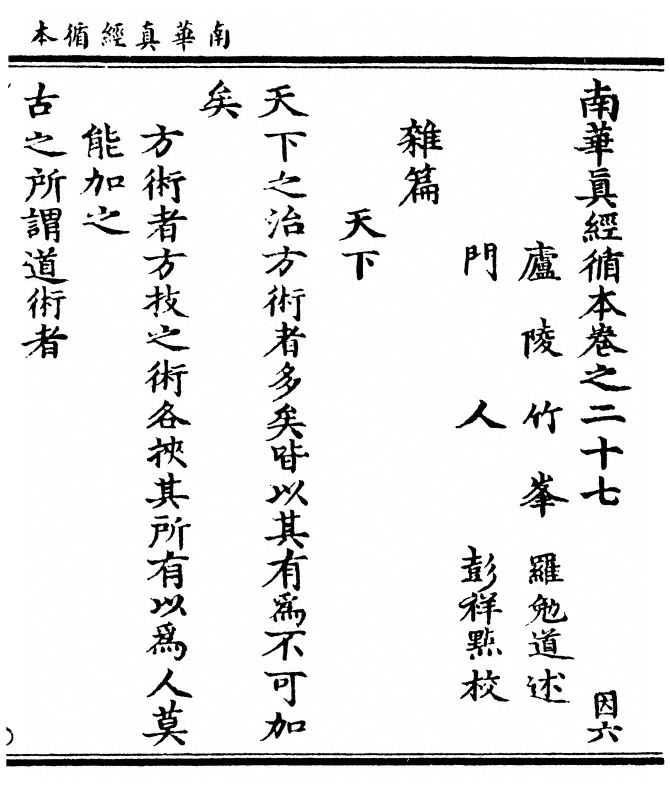 南華真經循本
南華眞經循本卷之二十七 因六
廬陵竹峯 羅勉道述
門人 彭祥點校
雜篇
天下
天下之治方術者多矣皆以其有爲不可加
矣
方術者方技之術各挾其所有以爲人莫
能加之
古之所謂道術者